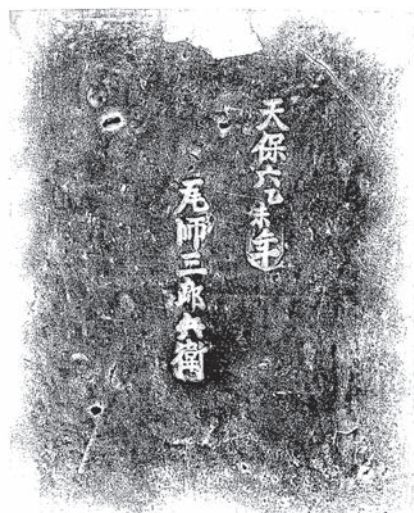 天保六乙未年
瓦師三郎兵衛